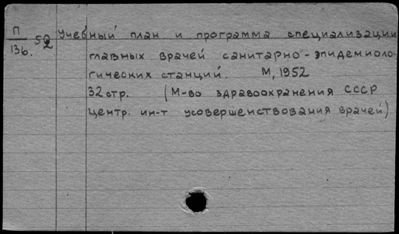 П
136.
52
Учебный план и программа специализации
главных врачей санитарно-эпидемиоло-
гических станций. М, 1952
32 стр. (М-во здравоохранения СССР
Центр. ин-т усовершенствования врачей)